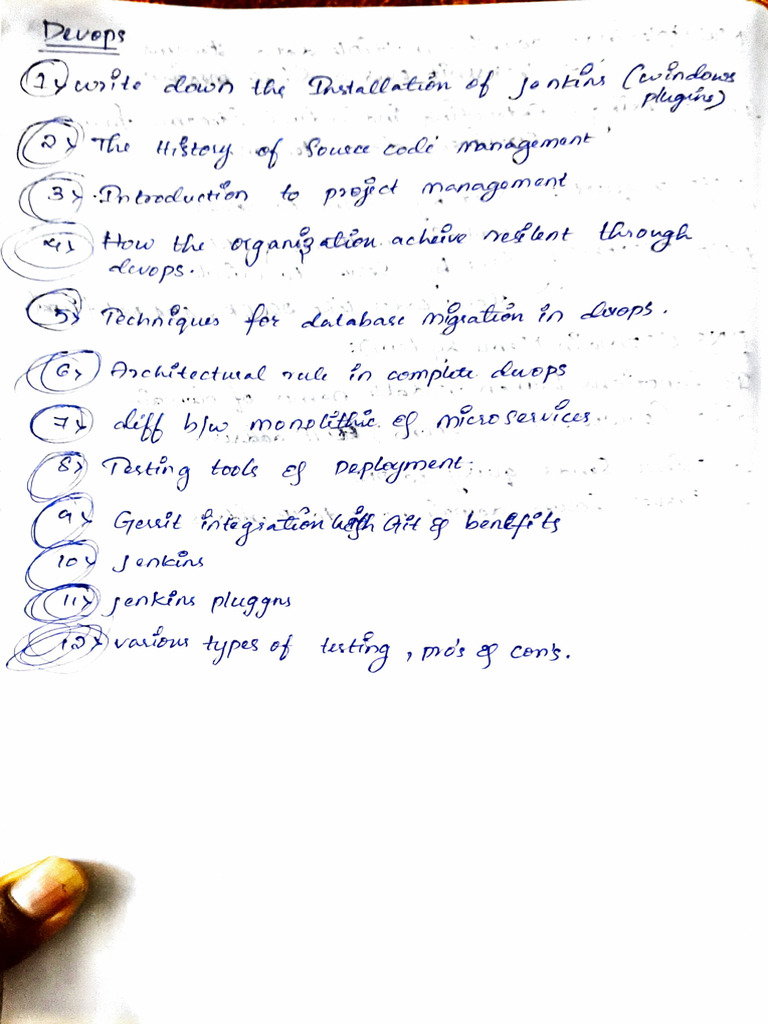 Devops
1) write down the Installation of Jenkins (windows
plugins)
2) The History of Source code management
3) Introduction to project management
4) How the organization acheive resilent through
devops.
5) Techniques for database migration in devops.
6) Architectural rule in complete devops
7) diff b/w monolithic & microservices
8) Testing tools & Deployment.
9) Gerrit integration with Git & benefits
10) Jenkins
11) Jenkins pluggns
12) various types of testing, pro's & con's.